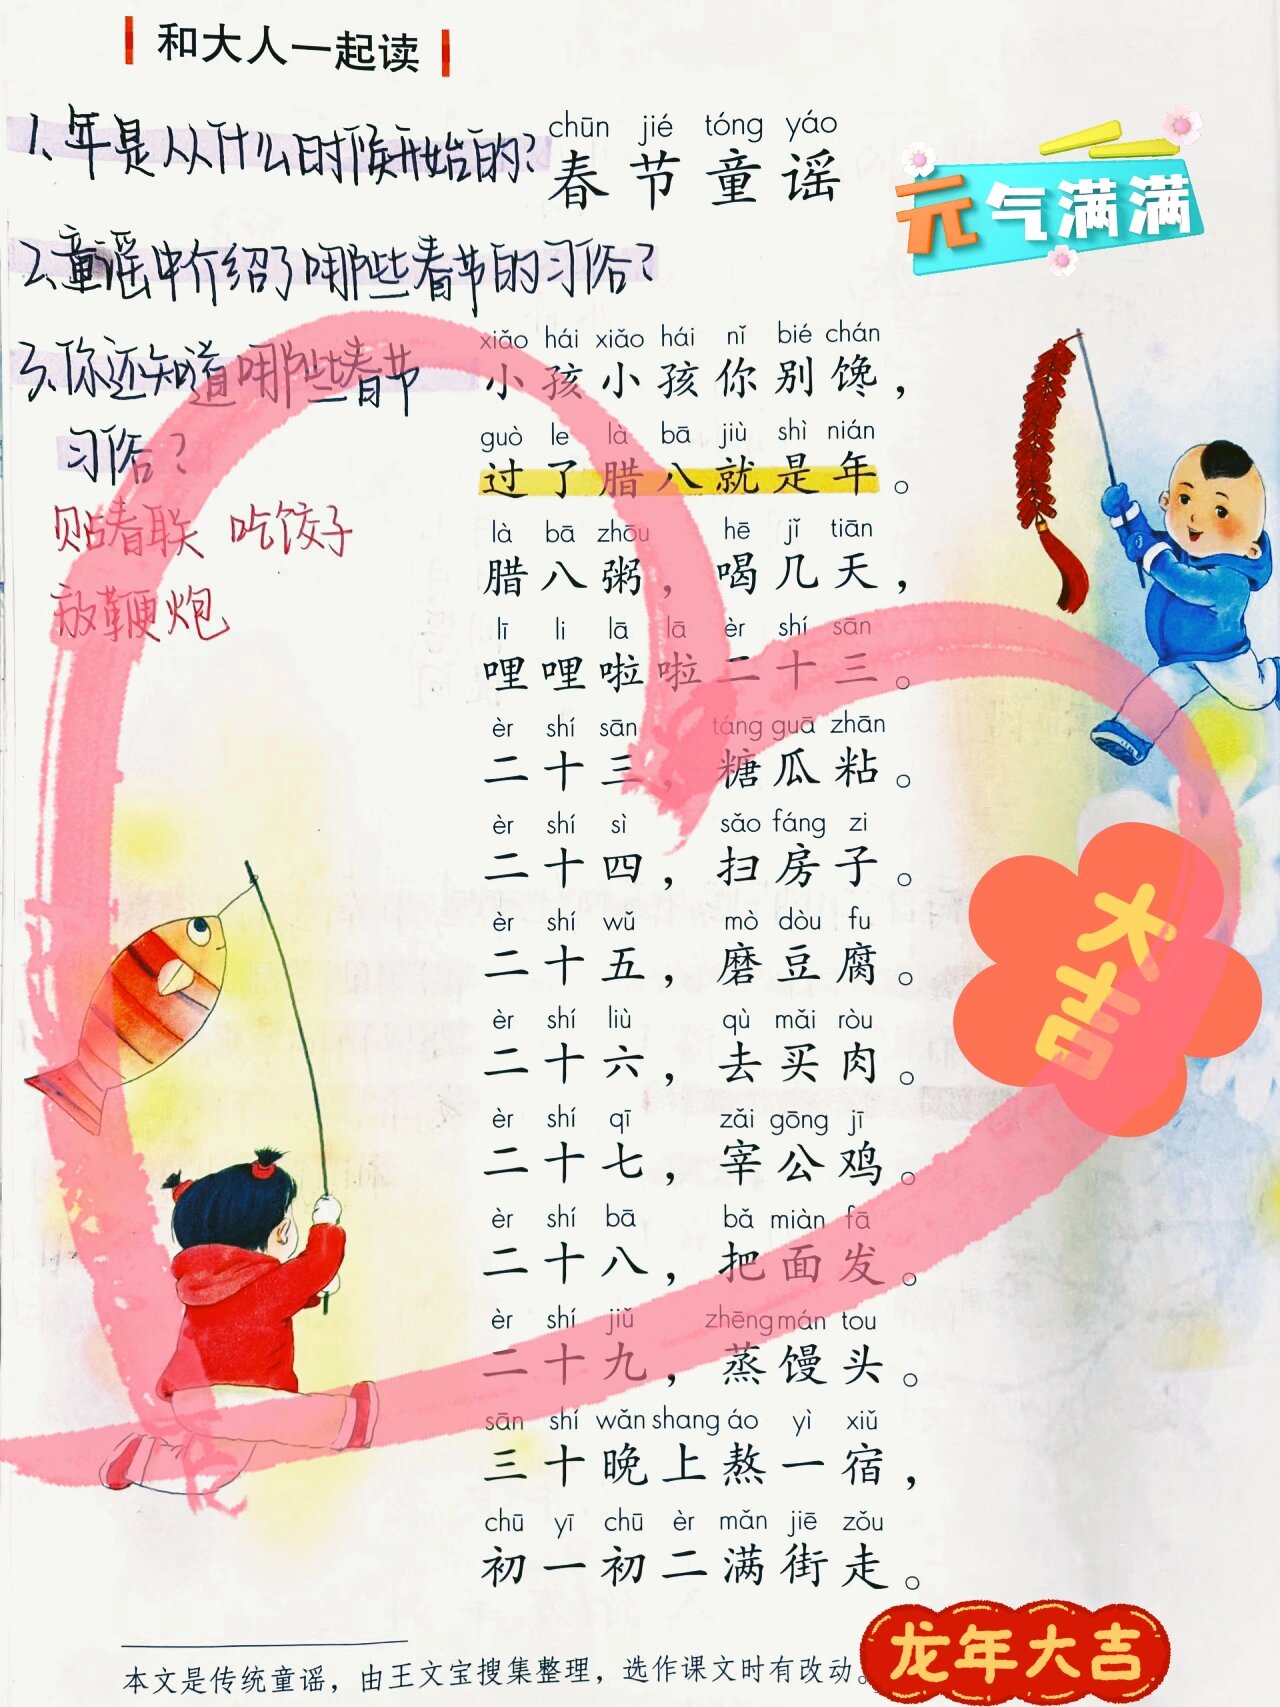 和大人一起读
1、年是从什么时候开始的?
chūn jié tóng yáo
春节童谣
元气满满
2、童谣中介绍了哪些春节的习俗?
3、你还知道哪些春节
习俗?
贴春联 吃饺子
放鞭炮
xiǎo hái xiǎo hái nǐ bié chán
小孩小孩你别馋，
guò le là bā jiù shì nián
过了腊八就是年。
là bā zhōu hē jǐ tiān
腊八粥，喝几天，
lī li lā lā èr shí sān
哩哩啦啦二十三。
èr shí sān táng guā zhān
二十三，糖瓜粘。
èr shí sì sǎo fáng zi
二十四，扫房子。
èr shí wǔ mò dòu fu
二十五，磨豆腐。
èr shí liù qù mǎi ròu
二十六，去买肉。
èr shí qī zǎi gōng jī
二十七，宰公鸡。
èr shí bā bǎ miàn fā
二十八，把面发。
èr shí jiǔ zhēng mán tou
二十九，蒸馒头。
sān shí wǎn shang áo yì xiǔ
三十晚上熬一宿，
chū yī chū èr mǎn jiē zǒu
初一初二满街走。
大吉
本文是传统童谣，由王文宝搜集整理，选作课文时有改动。
龙年大吉